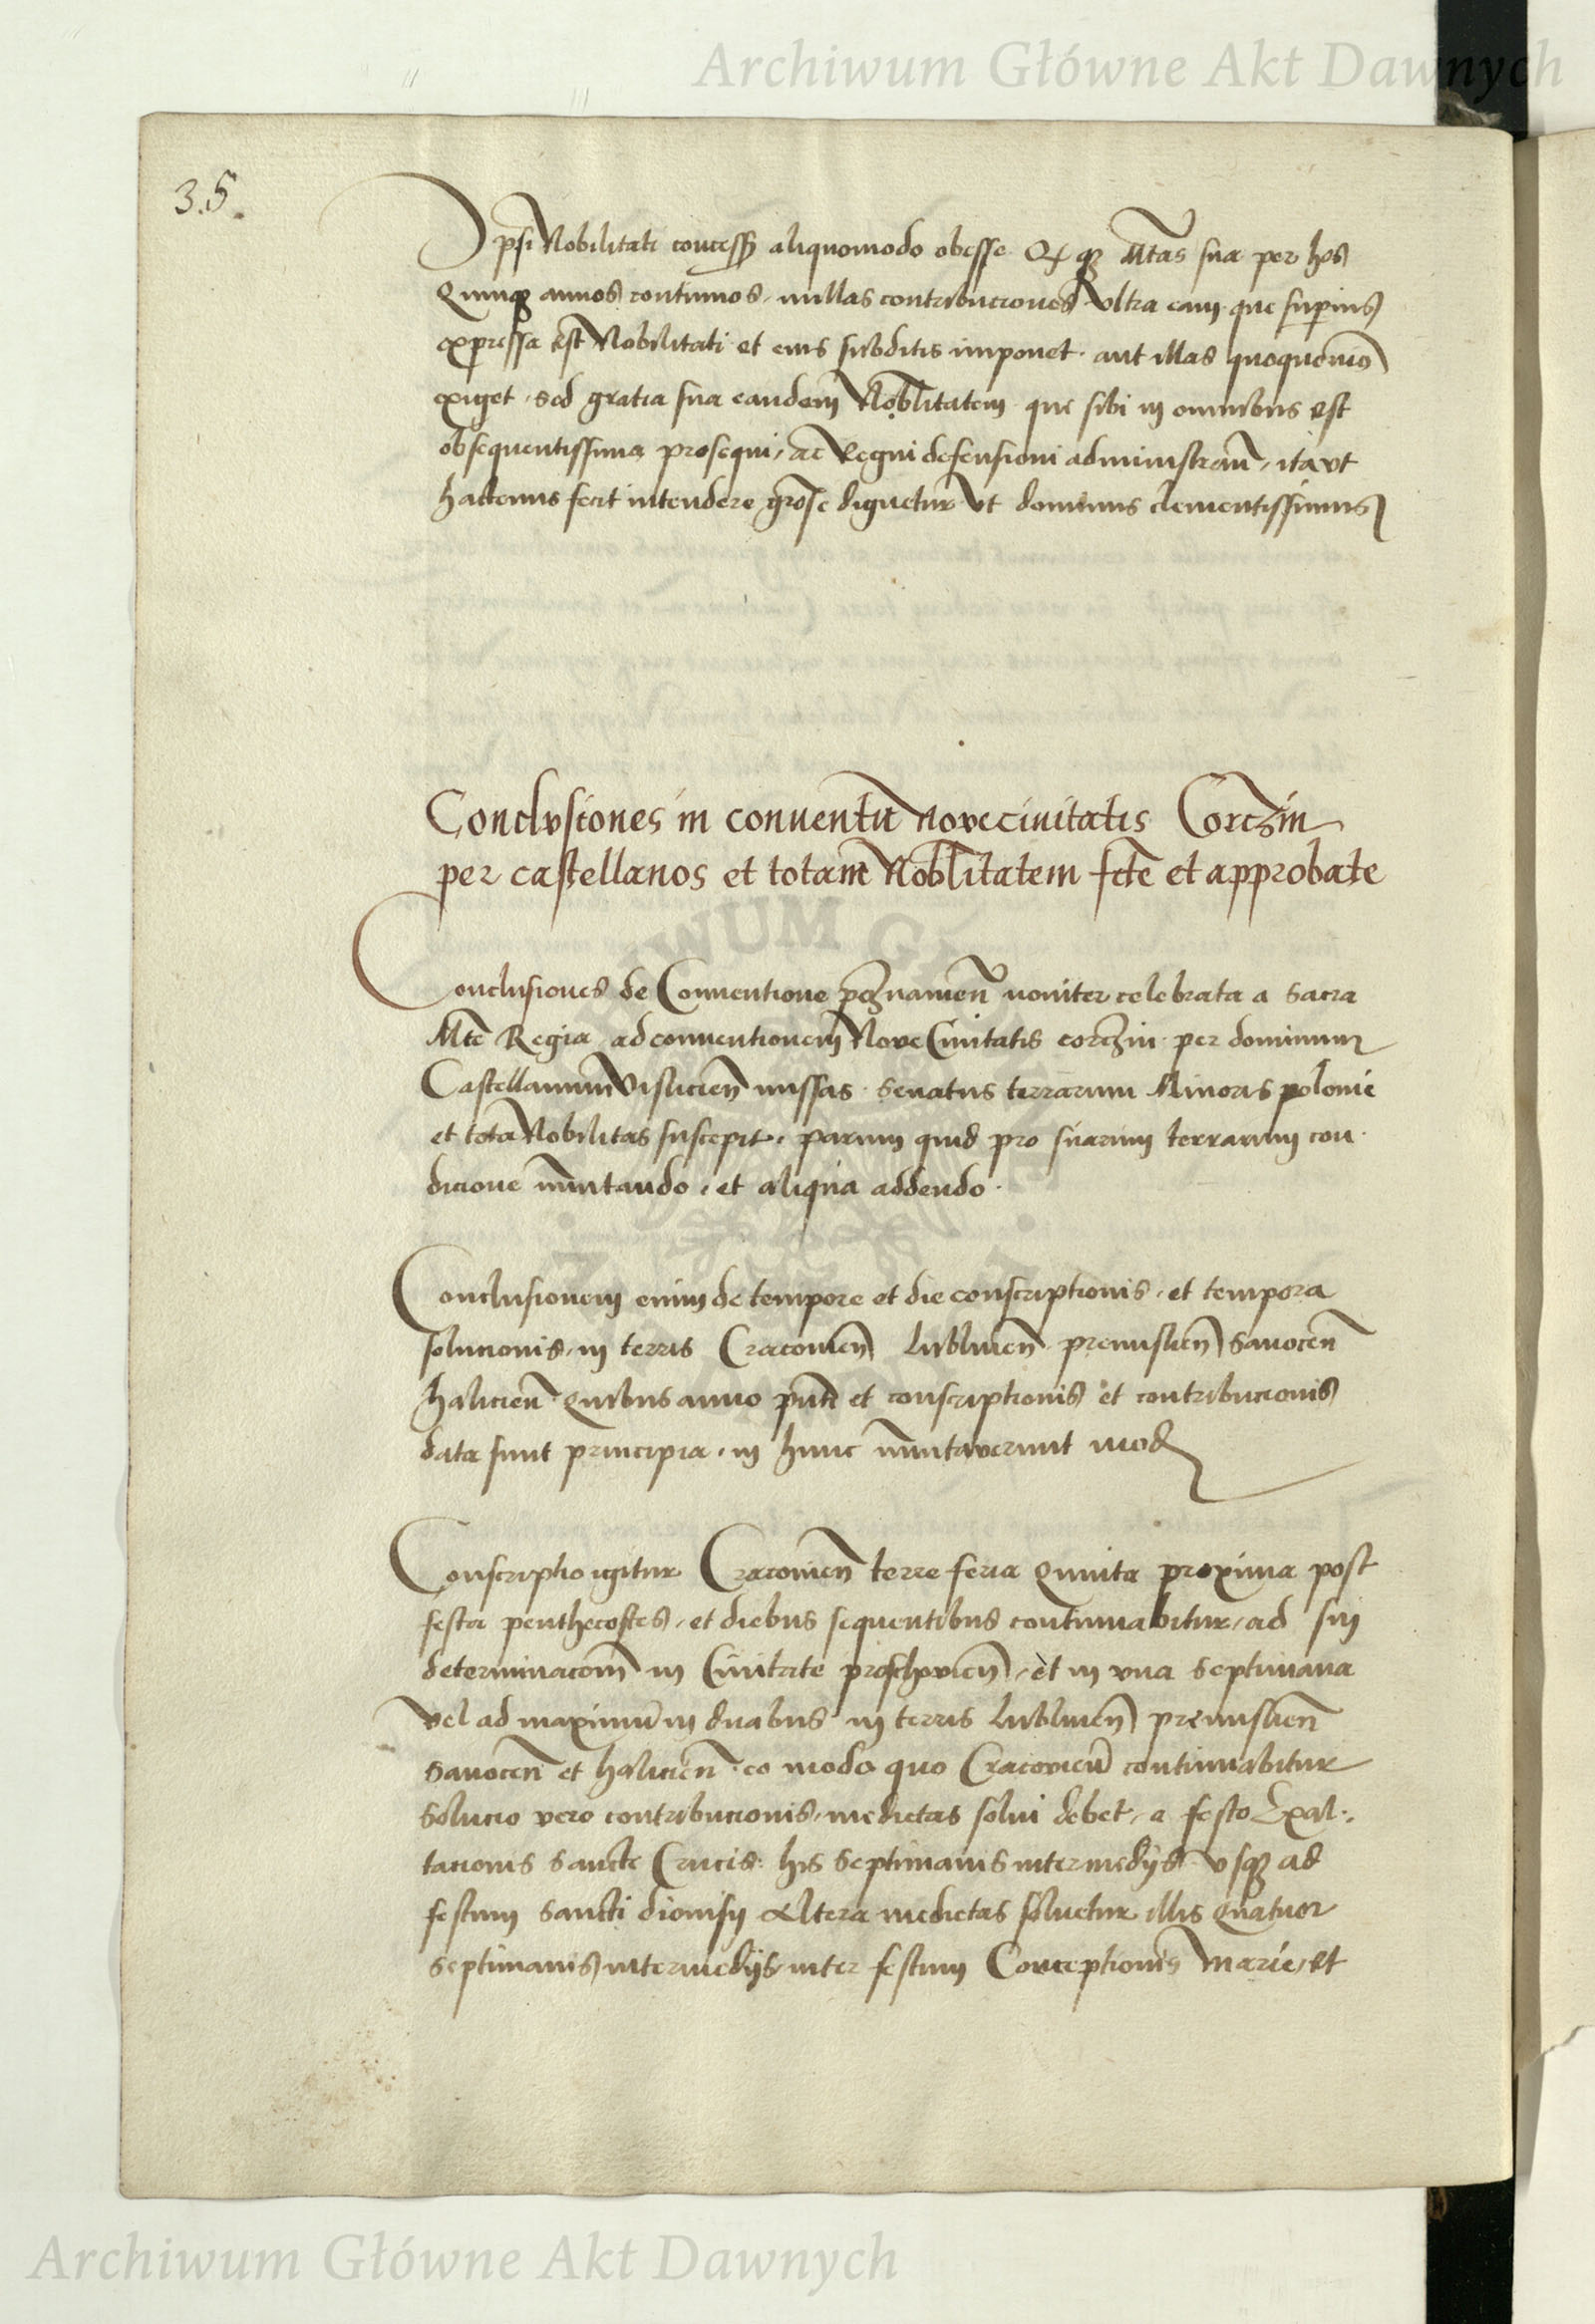 Archiwum Główne Akt Dawnych
35.
Ipsi Nobilitati concess aliquomodo obesse Et qȝ Mtas sua per hos
Quinqȝ annos continuos, nullas contribuciones Ultra eam que superius
expressa est Nobilitati et eius subditis imponet. aut illas quoquomo
exiget, sed gratia sua eandem Noblitatem que sibi in omnibus est
obsequentissima prosequi, ac Regni defensioni administran, ita vt
hactenus fecit intendere grose dignetur Vt dominus clementissimus
Conclvsiones in conuentu noue ciuitatis Corczin
per castellanos et totam Noblitatem fcte et approbate
Conclusiones de Conuentione poznanien nouiter celebrata a Sacra
Mte Regia ad conuentionem Noue Ciuitatis corczin per dominum
Castellanum Vislicien missas. Senatus terrarum Minoris polonie
et tota Nobilitas suscepit, parum quid pro suarum terrarum con.
dicione inmutando, et aliqua addendo.
Conclusionem enim de tempore et die conscriptionis, et tempora
solucionis, in terris Cracouien Lublinen premislien Sanocen
halicien Quibus anno pnti et conscriptionis et contribucionis
data sunt principia, in hunc inmutaverunt mod
Conscriptio igitur Cracouien terre feria Quinta proxima post
festa penthecostes, et diebus sequentibus continuabitur, ad sui
determinacom in Ciuitate proschovien, et in vna Septimana
vel ad maximum in duabus in terris Lublinen premislien
Sanocen et halicien. eo modo quo Cracovien continuabitur
Solucio vero contribucionis, medietas solui debet, a festo Exal.
tationis Sancte Crucis: his Septimanis intermedijs vsqȝ ad
festum Sancti dionisij Altera medietas soluetur illis Quatuor
Septimanis intermedijs, inter festum Conceptionis Marie, et
Archiwum Główne Akt Dawnych